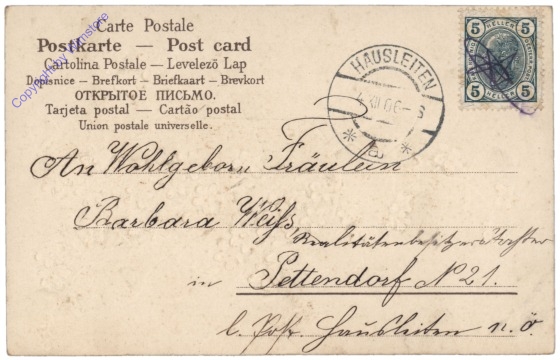 Carte Postale
Postkarte — Post card
Cartolina Postale — Levelező Lap
Dopisnice — Brefkort — Briefkaart — Brevkort
ОТКРЫТОЕ ПИСЬМО.
Tarjeta postal — Cartão postal
Union postale universelle.
HAUSLEITEN
5 5
HELLER
5 5
An Wohlgeborn Fräulein
Barbara Weiß
Realitätenbesitzerstochter
in Pettendorf N 21.
l. Post Hausleiten n. ö.